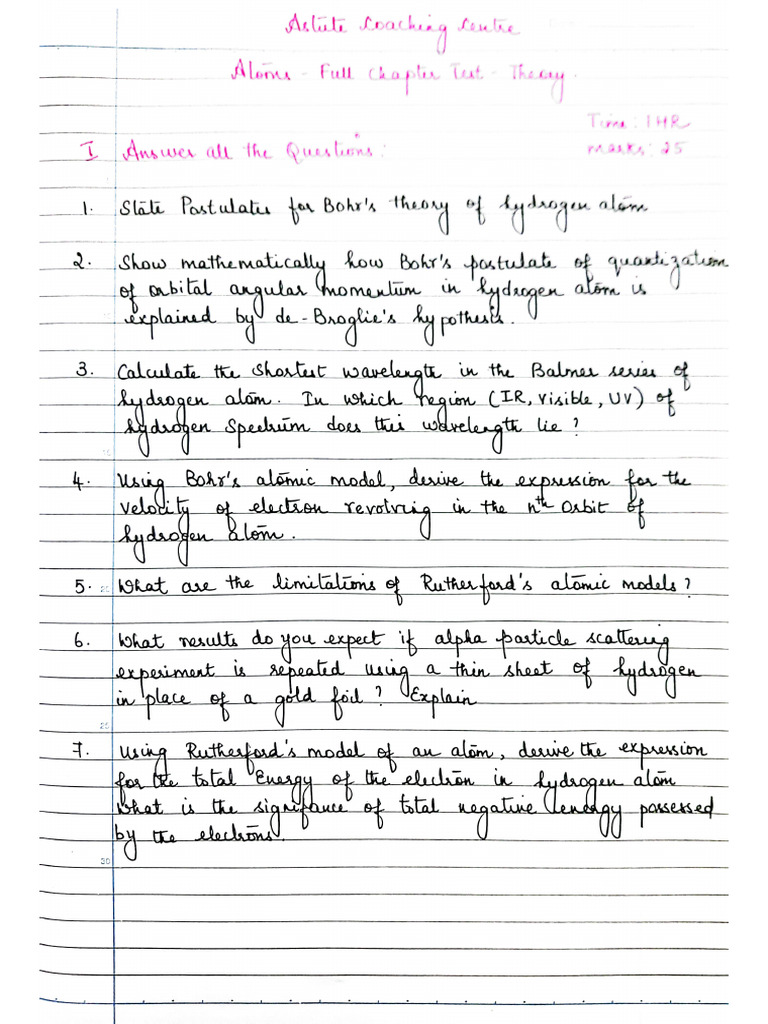 Astute Coaching Centre
Atoms - Full Chapter Test - Theory.
Time: 1 HR
I Answer all the Questions:
Marks: 25
1. State Postulates for Bohr's theory of hydrogen atom
2. Show mathematically how Bohr's postulate of quantization
of orbital angular momentum in hydrogen atom is
explained by de-Broglie's hypothesis.
3. Calculate the shortest wavelength in the Balmer series of
hydrogen atom. In which region (IR, Visible, UV) of
hydrogen Spectrum does this wavelength lie?
4. Using Bohr's atomic model, derive the expression for the
velocity of electron revolving in the nth orbit of
hydrogen atom.
5. What are the limitations of Rutherford's atomic models?
6. What results do you expect if alpha particle scattering
experiment is repeated using a thin sheet of hydrogen
in place of a gold foil? Explain
25
7. Using Rutherford's model of an atom, derive the expression
for the total Energy of the electron in hydrogen atom
What is the signifance of total negative energy possessed
by the electrons.
30